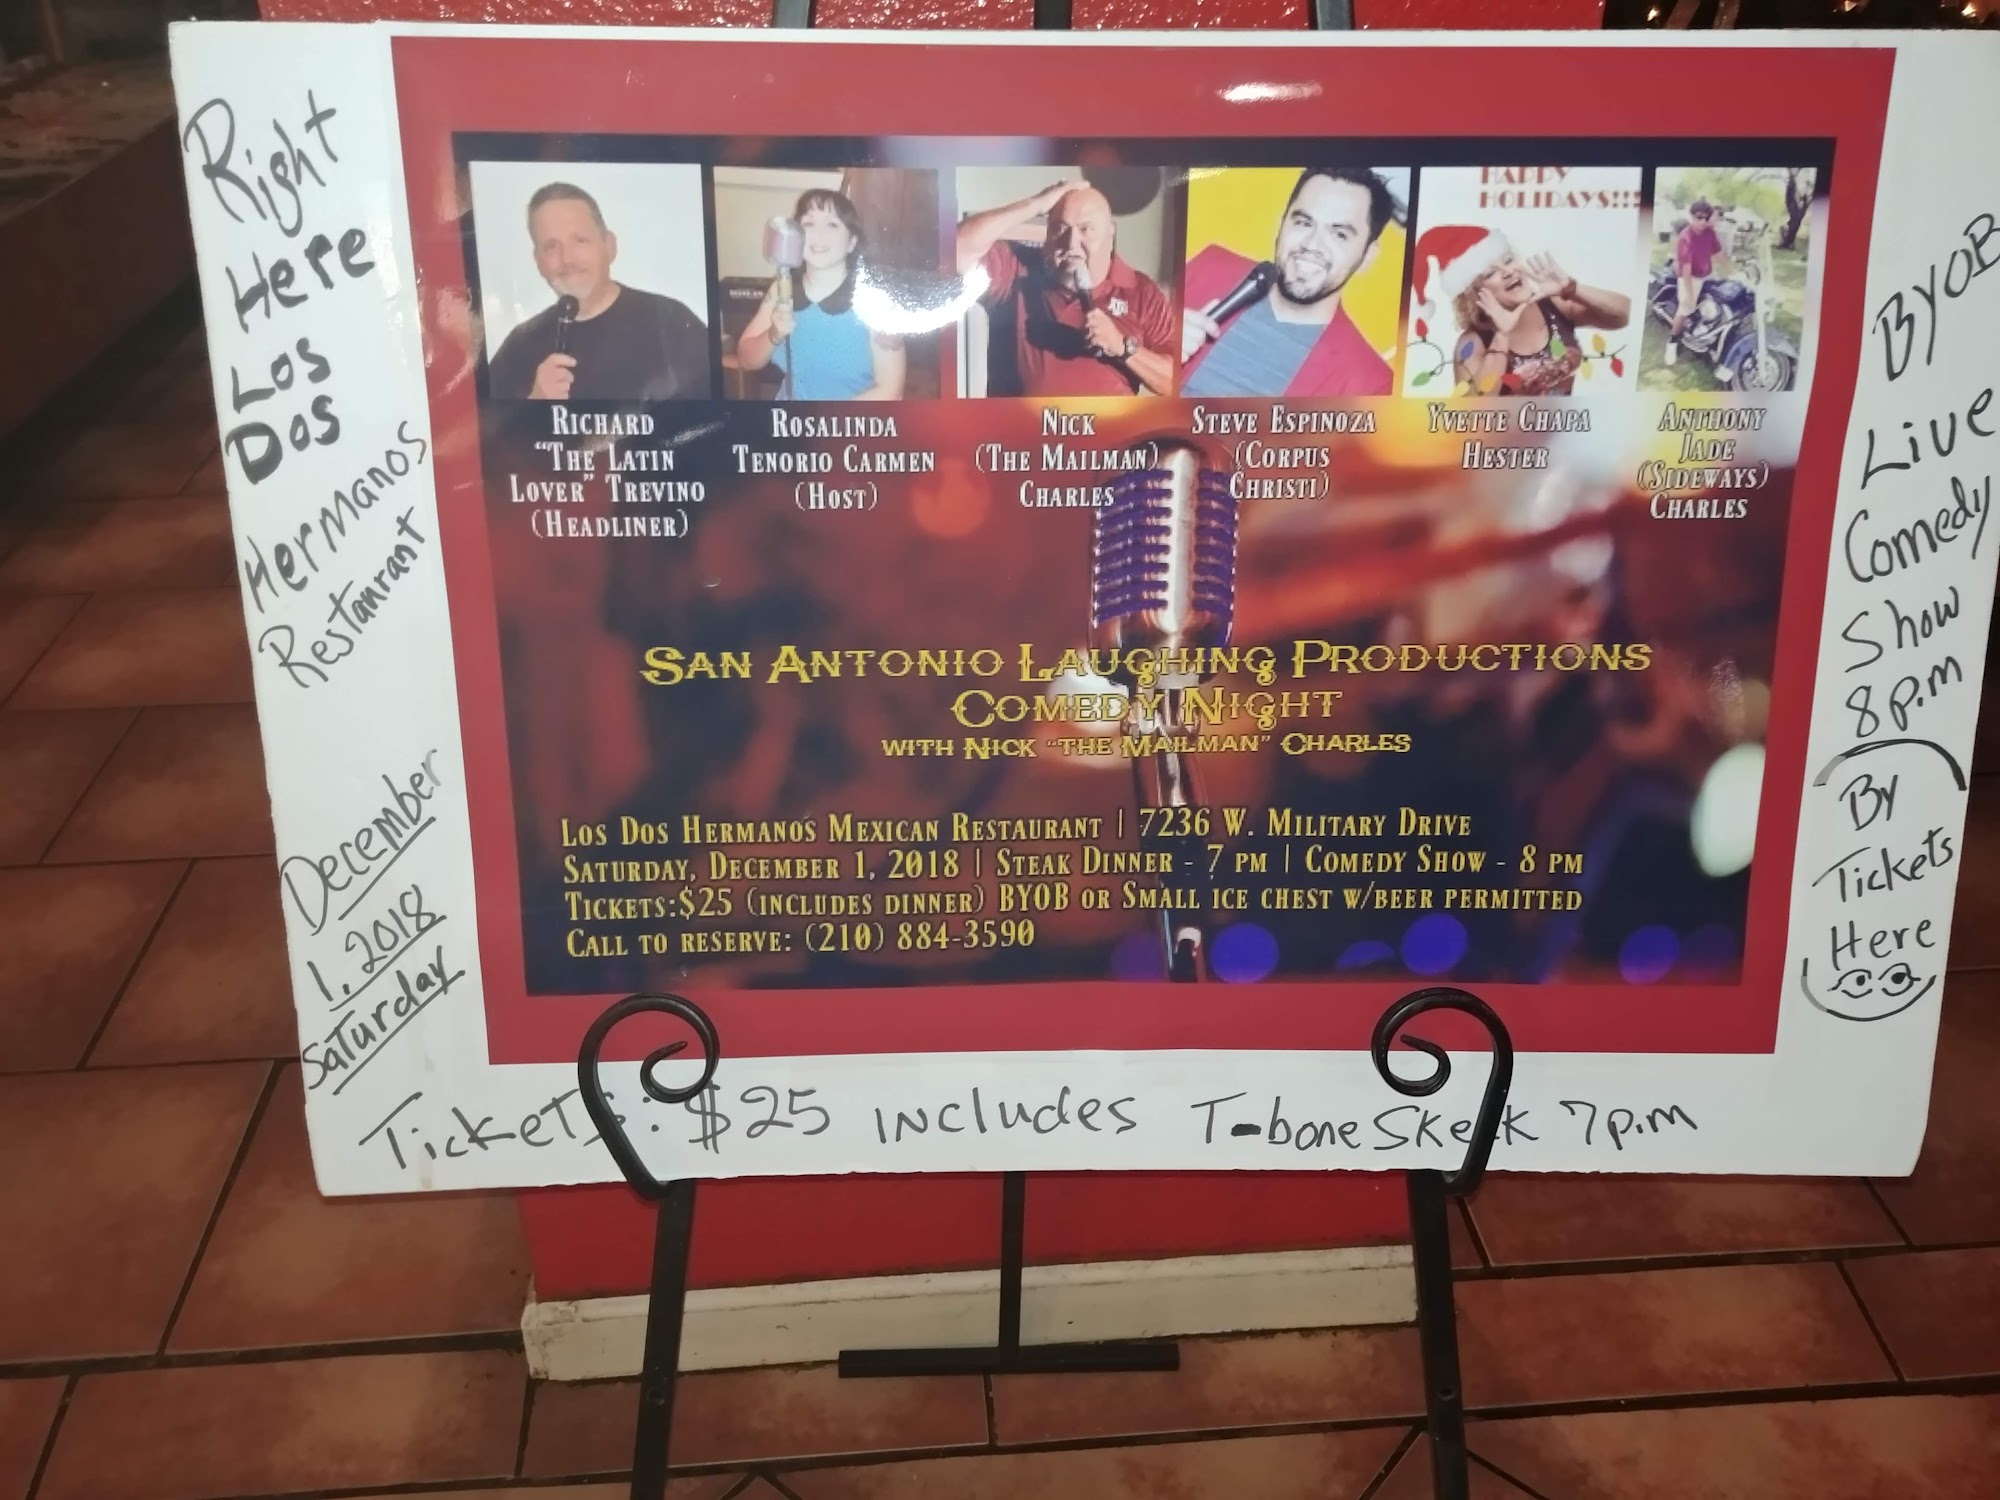 Right
Here
Los
Dos
Hermanos
Restaurant
December
1, 2018
Saturday
HAPPY
HOLIDAYS!!!
RICHARD
"THE LATIN
LOVER" TREVINO
(HEADLINER)
ROSALINDA
TENORIO CARMEN
(HOST)
NICK
(THE MAILMAN)
CHARLES
STEVE ESPINOZA
(CORPUS
CHRISTI)
YVETTE CHAPA
HESTER
ANTHONY
JADE
(SIDEWAYS)
CHARLES
SAN ANTONIO LAUGHING PRODUCTIONS
COMEDY NIGHT
WITH NICK "THE MAILMAN" CHARLES
LOS DOS HERMANOS MEXICAN RESTAURANT | 7236 W. MILITARY DRIVE
SATURDAY, DECEMBER 1, 2018 | STEAK DINNER - 7 PM | COMEDY SHOW - 8 PM
TICKETS:$25 (INCLUDES DINNER) BYOB OR SMALL ICE CHEST W/BEER PERMITTED
CALL TO RESERVE: (210) 884-3590
BYOB
Live
Comedy
Show
8 p.m
By
Tickets
Here
Tickets: $25 includes T-bone Skeak 7 p.m